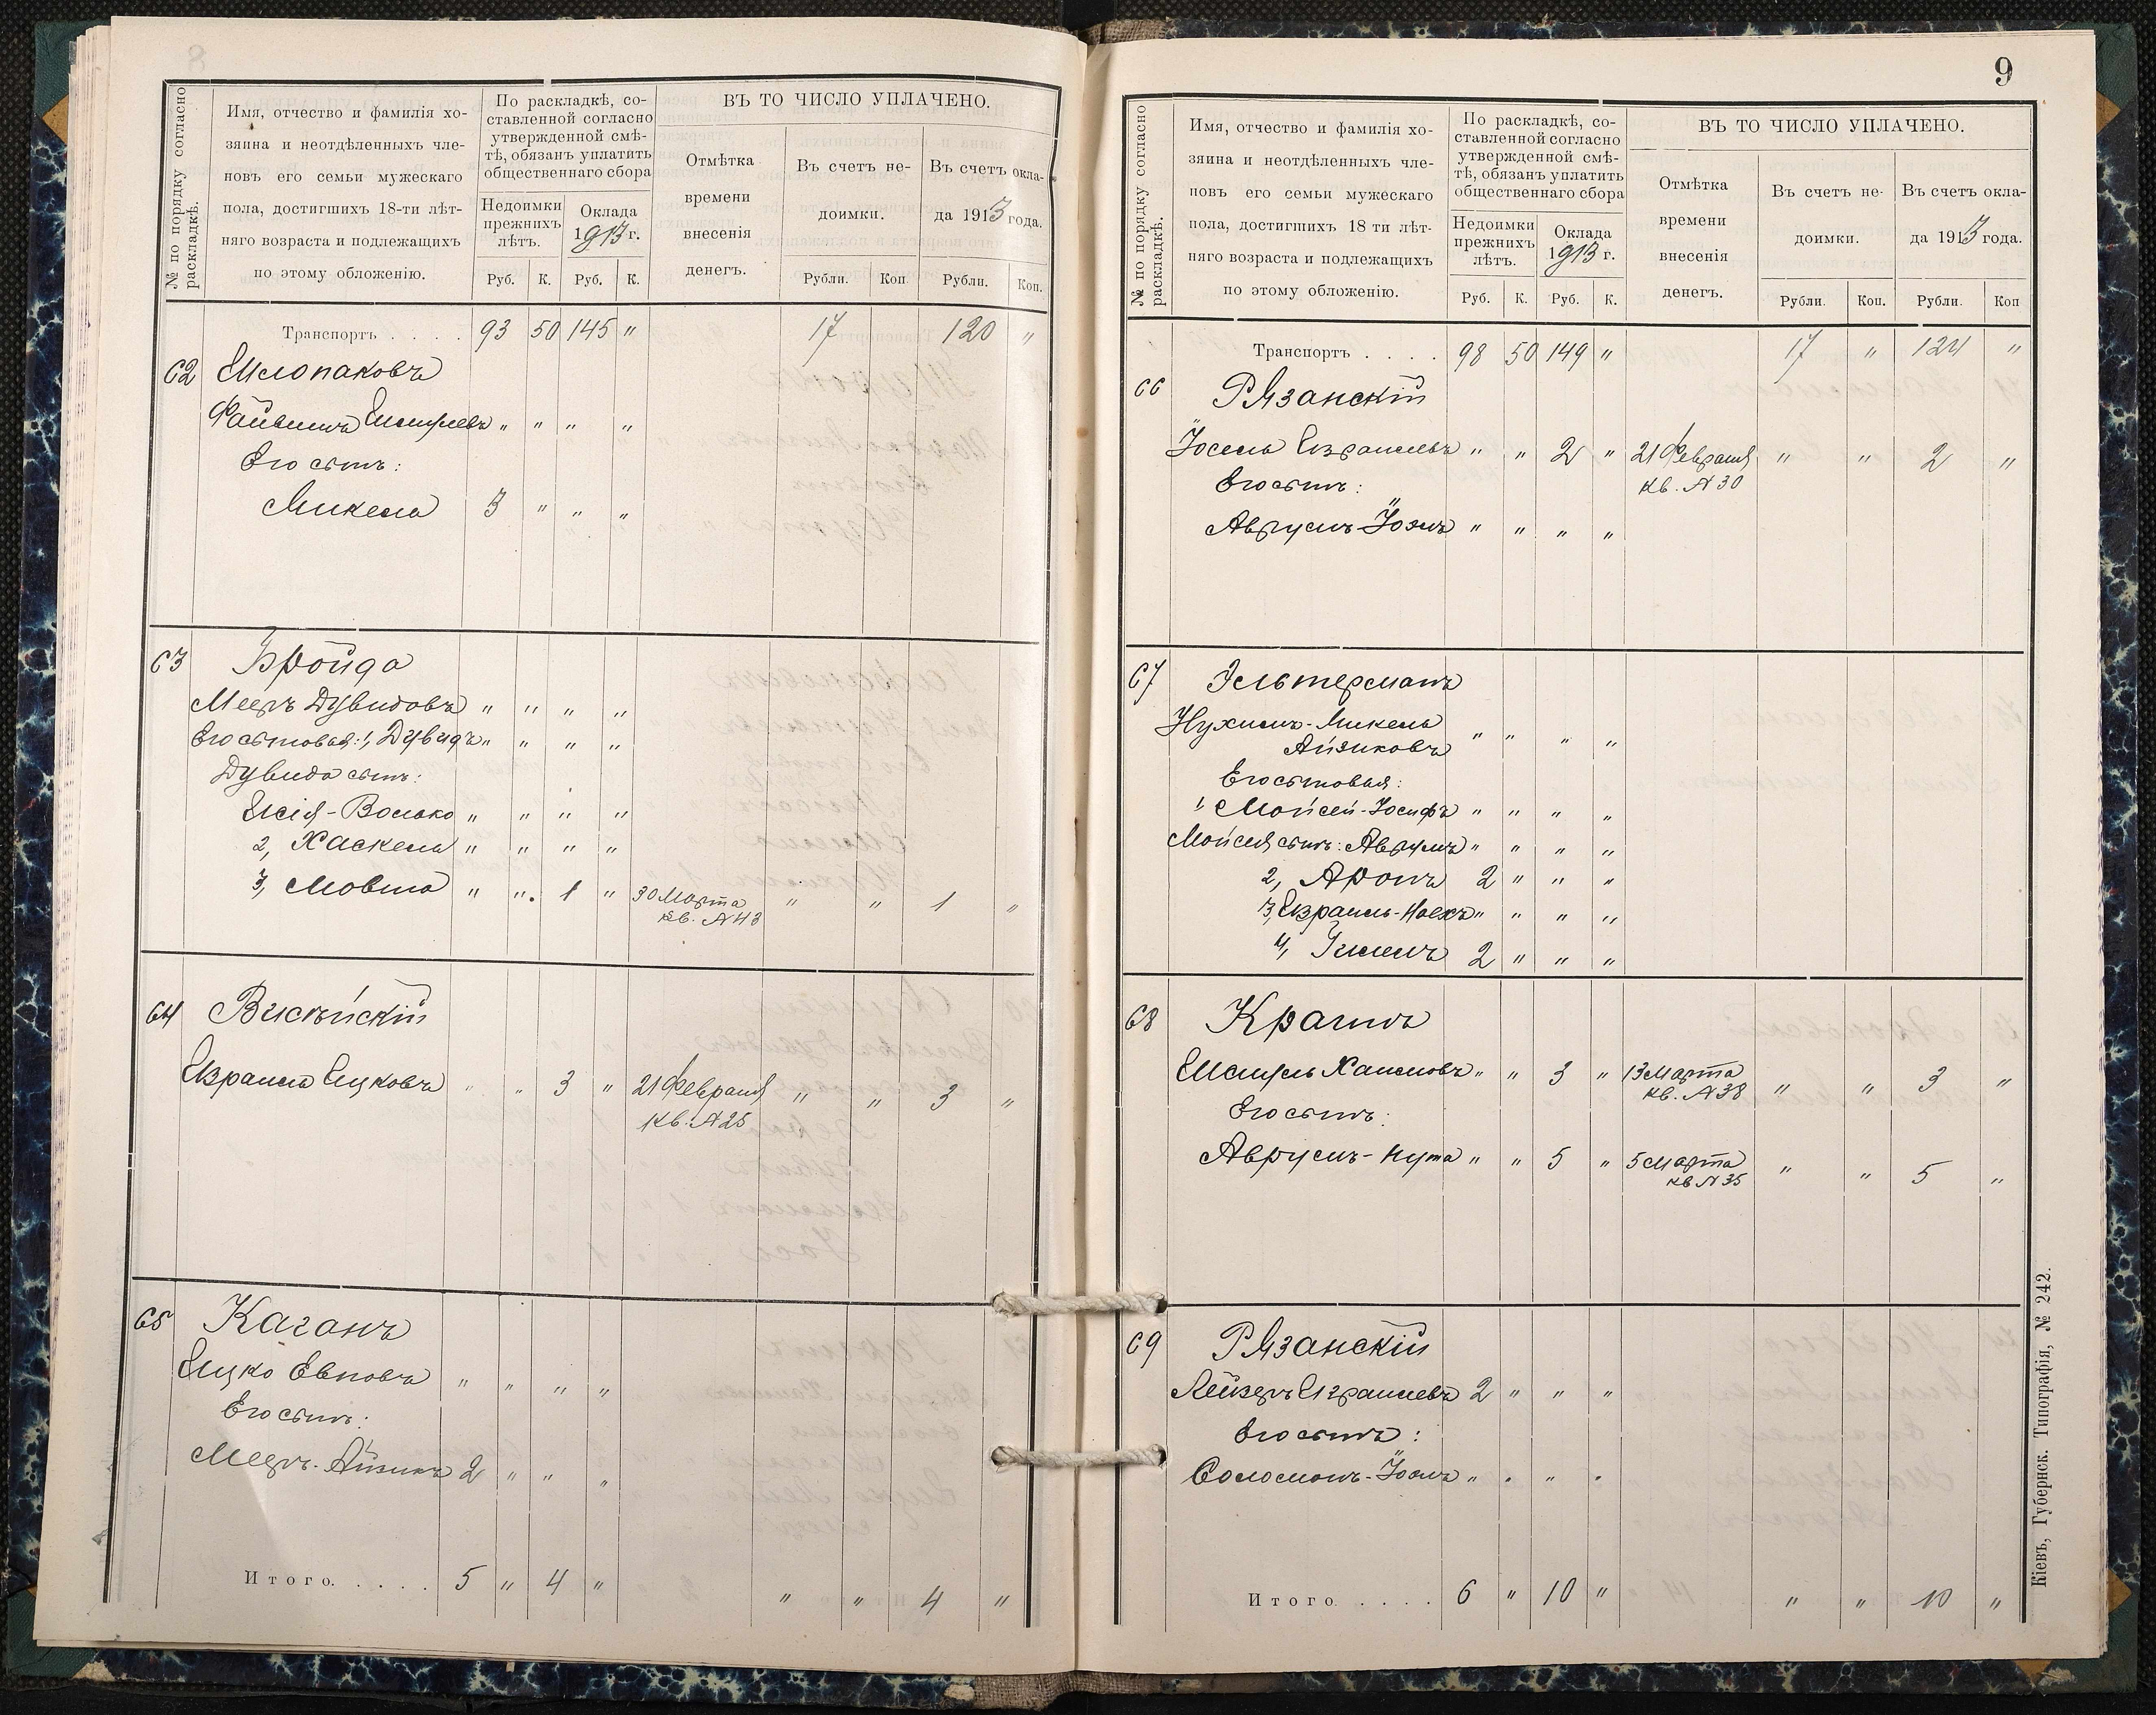 № по порядку согласно раскладкѣ.
Имя, отчество и фамилія хо-
зяина и неотдѣленныхъ чле-
новъ его семьи мужескаго
пола, достигшихъ 18-ти лѣт-
няго возраста и подлежащихъ
по этому обложенію.
По раскладкѣ, со-
ставленной согласно
утвержденной смѣ-
тѣ, обязанъ уплатить
общественнаго сбора
Недоимки прежнихъ лѣтъ.
Оклада 1913 г.
Руб. К. Руб. К.
ВЪ ТО ЧИСЛО УПЛАЧЕНО.
Отмѣтка времени внесенія денегъ.
Въ счетъ не- доимки.
Въ счетъ окла- да 1913 года.
Рубли. Коп. Рубли. Коп.
Транспортъ . . . . 93 50 145 " 17 120 "
62 Шлопаковъ
Файвишъ Шмулевъ " " " "
Его сынъ:
Микель 3 " " "
63 Бройда
Мееръ Дувидовъ " " " "
Его сыновья: 1, Дувидъ " " " "
Дувида сынъ:
Янкель-Волько " " " "
2, Хаскель " " " "
3, Мовша " " 1 " 30 Марта " " 1 "
кв. № 43
64
Израиль Ицковъ " " 3 " 21 Февраля " " 3 "
кв. № 25
65 Каганъ
Ицко Евновъ " " " "
Его сынъ:
Мееръ-Айзикъ 2 " " "
Итого. . . . . 5 " 4 " " " 4 "
9
№ по порядку согласно раскладкѣ.
Имя, отчество и фамилія хо-
зяина и неотдѣленныхъ чле-
новъ его семьи мужескаго
пола, достигшихъ 18 ти лѣт-
няго возраста и подлежащихъ
по этому обложенію.
По раскладкѣ, со-
ставленной согласно
утвержденной смѣ-
тѣ, обязанъ уплатить
общественнаго сбора
Недоимки прежнихъ лѣтъ.
Оклада 1913 г.
Руб. К. Руб. К.
ВЪ ТО ЧИСЛО УПЛАЧЕНО.
Отмѣтка времени внесенія денегъ.
Въ счетъ не- доимки.
Въ счетъ окла- да 1913 года.
Рубли. Коп. Рубли. Коп
Транспортъ . . . . 98 50 149 " 17 " 124 "
66 Рязанскій
Іосель Израилевъ " " 2 " 21 Февраля " " 2 "
Его сынъ: кв. № 30
Аврумъ-Іоэль " " " "
67 Эльтерманъ
Нухимъ-Микель
Айзиковъ " " " "
Его сыновья:
1, Мойсей-Іосифъ " " " "
Мойсея сынъ: Аврумъ " " " "
2, Аронъ 2 " " "
3, Израиль- " " " "
4, 2 " " "
68 Крагинъ
Шмуль Хаимовъ " " 3 " 13 Марта " " 3 "
кв. № 38
Его сынъ:
Аврумъ-Нута " " 5 " 5 Марта " " 5 "
кв № 35
69 Рязанскій
Лейзеръ Израилевъ 2 " " "
Его сынъ:
Соломонъ-Іоэль " " " "
Итого. . . . . 6 " 10 " " " 10 "
Кіевъ, Губернск. Типографія, № 242.